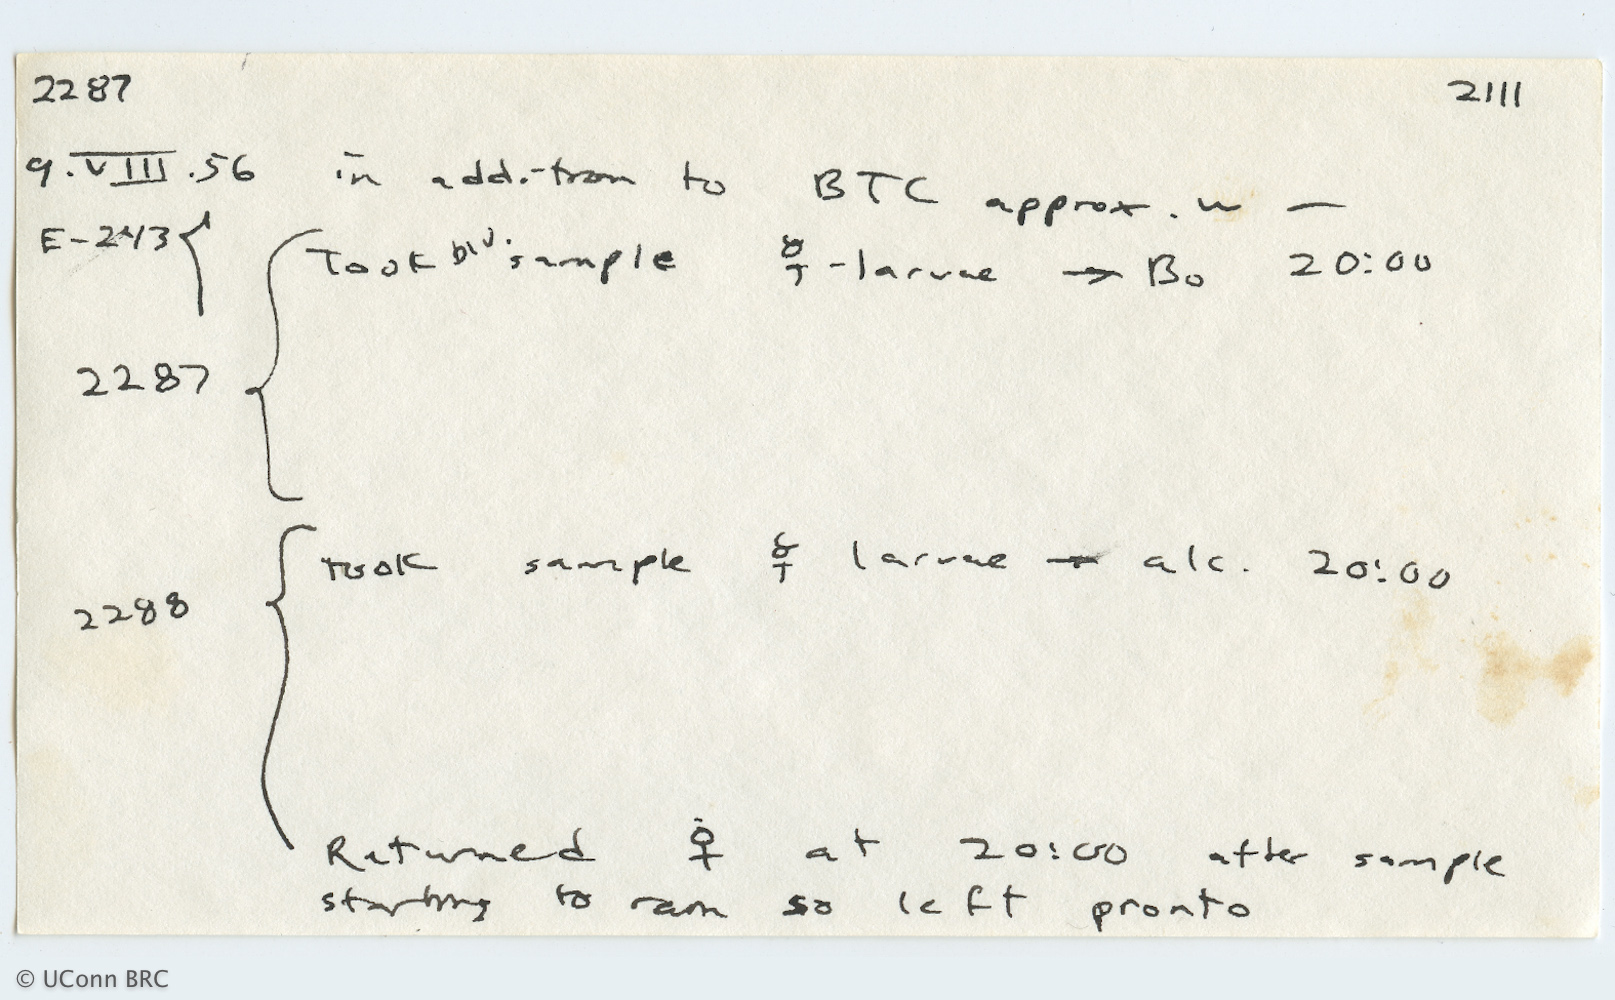 2287 2111
9.VIII.56 in addition to BTC approx. w —
E-243 { Took biv. sample ☿-larvae → Bo 20:00
2287
Took sample ☿ larvae → alc. 20:00
2288
Returned ♀ at 20:00 after sample
starting to rain so left pronto
© UConn BRC